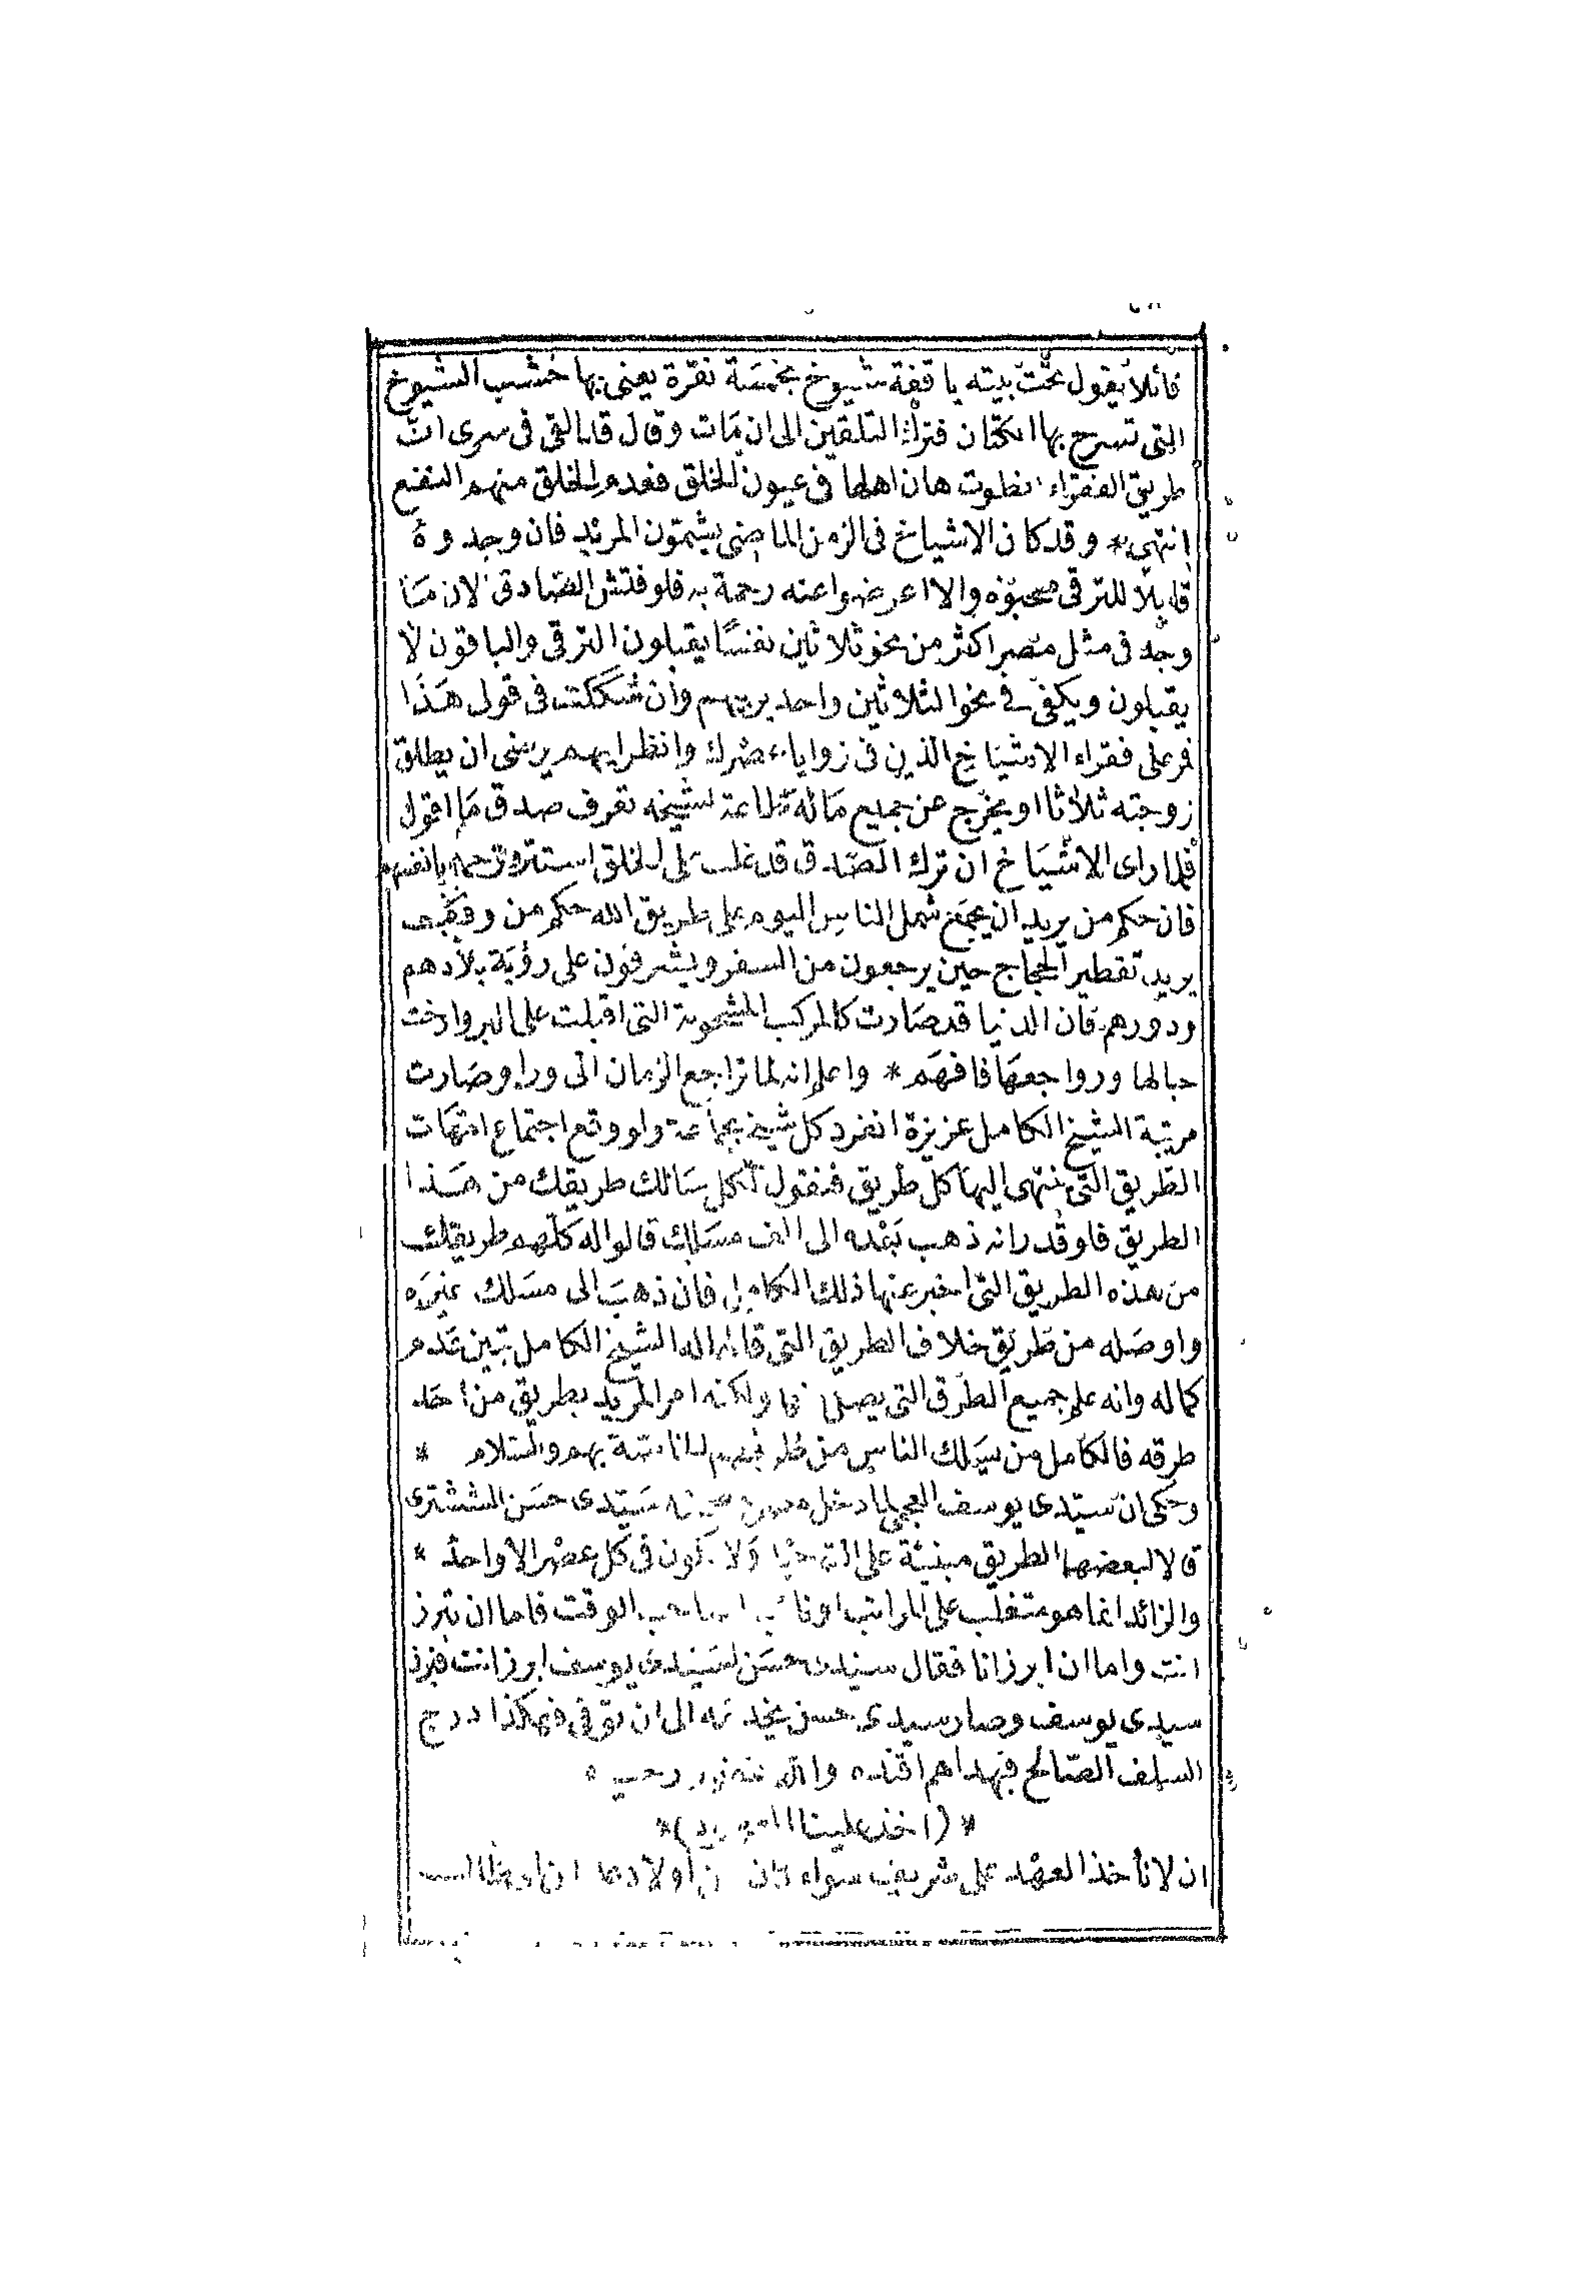 قائلا يقول تحت بيته يا قفة شيوخ بخمسة نقرة يعنى بها خشب الشيوخ
التى تسرح بها الكتان فترك التلقين الى ان مات وقال قد القى فى سرى ان
طريق الفقراء انطوت هان اهلها فى عيون الخلق فعدم الخلق منهم النفع
انتهى * وقد كان الاشياخ فى الزمن الماضى يشمتون المريد فان وجدوه
قابلا للترقى صحبوه والا اعرضوا عنه رحمة به فلو فتش الصادق الان ما
وجد فى مثل مصر اكثر من نحو ثلاثين نفسا يقبلون الترقى والباقون لا
يقبلون ويكفى فى نحو الثلاثين واحد يربيهم وان شككت فى قولى هذا
فر على فقراء الاشياخ الذين فى زوايا مصرك وانظر ايهم يرضى ان يطلق
زوجته ثلاثا او يخرج عن جميع ماله طاعة لشيخه تعرف صدق ما اقول
فلما راى الاشياخ ان ترك الصدق قد غلب على الخلق استتروا رحمة بانفسهم
فان حكم من يريد ان يجمع شمل الناس اليوم على طريق الله حكم من وقف
يريد تقطير الحجاج حين يرجعون من السفر ويشرفون على رؤية بلادهم
ودورهم فان الدنيا قد صارت كالمركب المشحونة التى اقبلت على البر وارخت
حبالها ورواجعها فافهم * واعلم انه لما تراجع الزمان الى ورا وصارت
مرتبة الشيخ الكامل عزيزة انفرد كل شيخ بجماعة ولو وقع اجتماع امهات
الطريق التى ينتهى اليها كل طريق فنقول لكل سالك طريقك من هذا
الطريق فلو قدر انه ذهب بعده الى الف مسلك قالوا له كلهم طريقك
من هذه الطريق التى اخبر عنها ذلك الكامل فان ذهب الى مسلك غيره
واوصله من طريق خلاف الطريق التى قالها له الشيخ الكامل تبين عدم
كماله وانه علم جميع الطرق التى يصل ولكنه امر المريد بطريق من احد
طرقه فالكامل من سلك الناس من طريقهم بهم والسلام *
وحكى ان سيدى يوسف العجمى لما دخل سيدى حسن الششترى
قالا لبعضهما الطريق مبنية على ولا تكون فى كل عصر الا واحد *
والزائد انما هو متغلب على المراتب او نائب الوقت فاما ان تبرز
انت واما ان ابرز انا فقال سيدى حسن لسيدى يوسف ابرز انت فبرز
سيدى يوسف وصار سيدى حسن يخدمه الى ان توفى فهكذا درج
السلف الصالح فبهداهم اقتده والله غفور رحيم *
*(اخذ علينا العهود)*
ان لا نأخذ العهد على شريف سواء كان من أولاد